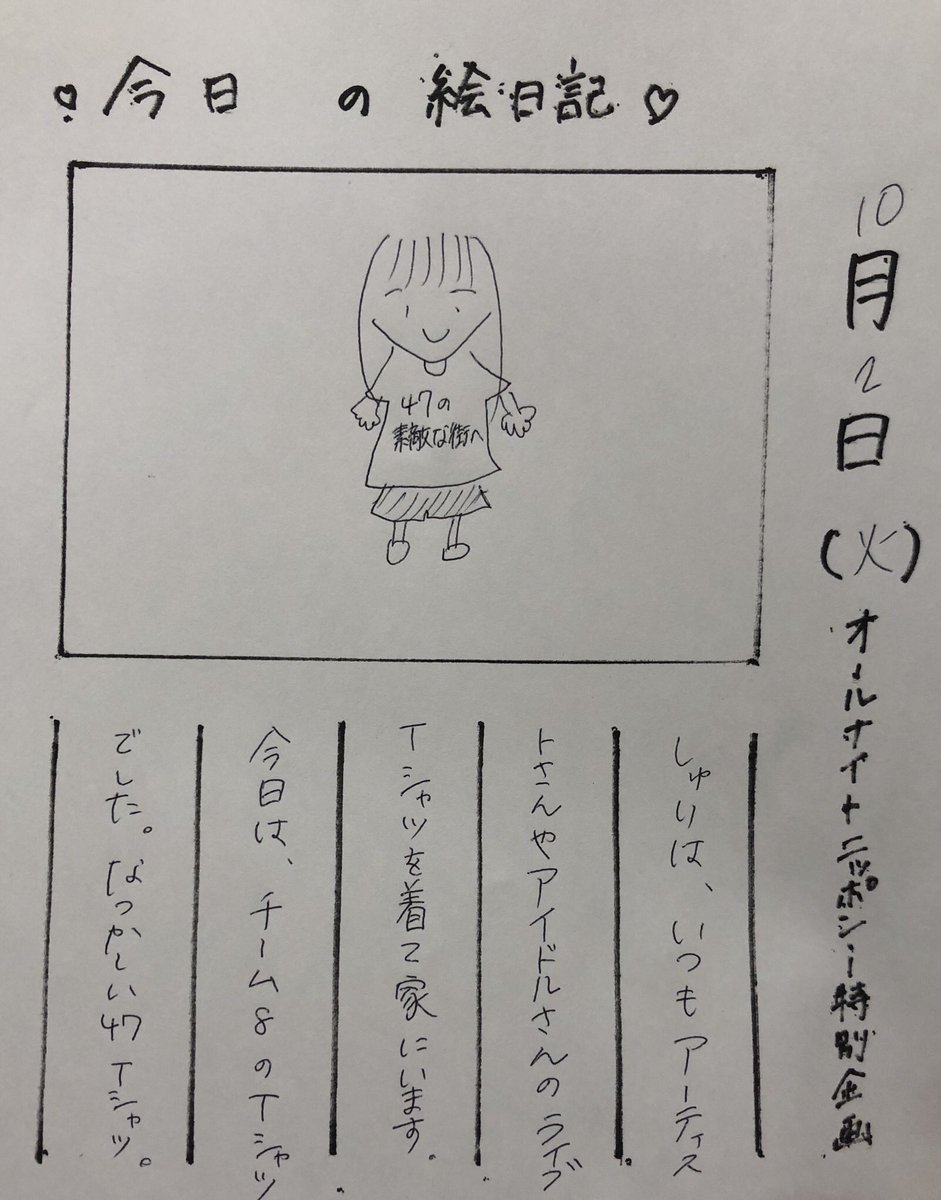 ♡今日 の 絵日記♡
10月2日(火)オールナイトニッポン特別企画
47の
素敵な街へ
しゅりは、いつもアーティス
トさんやアイドルさんのライブ
Tシャツを着て家にいます。
今日は、チーム8のTシャツ
でした。なつかしい47Tシャツ。